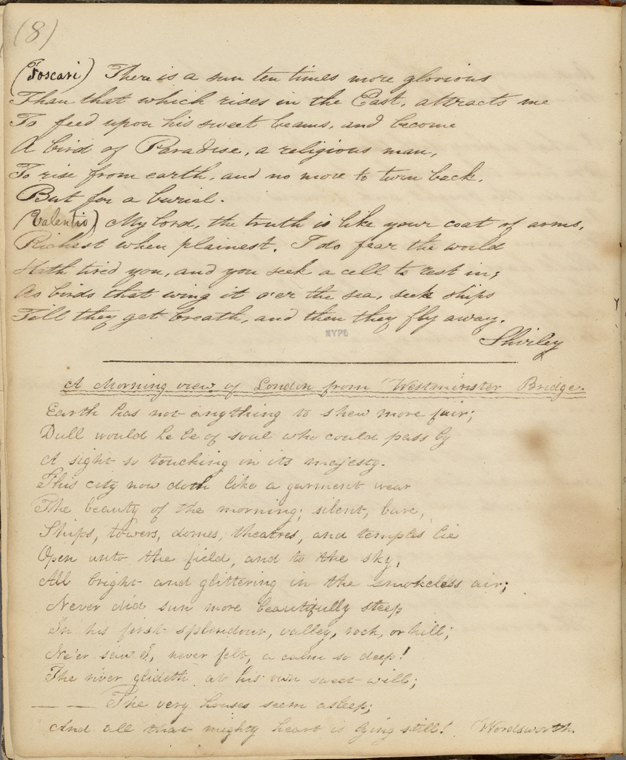 (8)
(Foscari) There is a sun ten times more glorious
Than that which rises in the East, attracts me
To feed upon his sweet beams, and become
A bird of Paradise, a religious man,
To rise from earth, and no more to turn back,
But for a burial.
(Valentio) My lord, the truth is like your coat of arms,
Richest when plainest. I do fear the world
Hath tired you, and you seek a cell to rest in;
As birds that wing it o'er the sea, seek ships
Till they get breath, and then they fly away.
NYPL
Shirley
A Morning view of London from Westminster Bridge.
Earth has not anything to shew more fair;
Dull would he be of soul who could pass by
A sight so touching in its majesty.
This city now doth like a garment wear
The beauty of the morning; silent, bare,
Ships, towers, domes, theatres, and temples lie
Open unto the field, and to the sky,
All bright and glittering in the smokeless air;
Never did sun more beautifully steep
In his first splendour, valley, rock, or hill;
Ne'er saw I, never felt, a calm so deep!
The river glideth at his own sweet will;
— — The very houses seem asleep;
And all that mighty heart is lying still! Wordsworth.